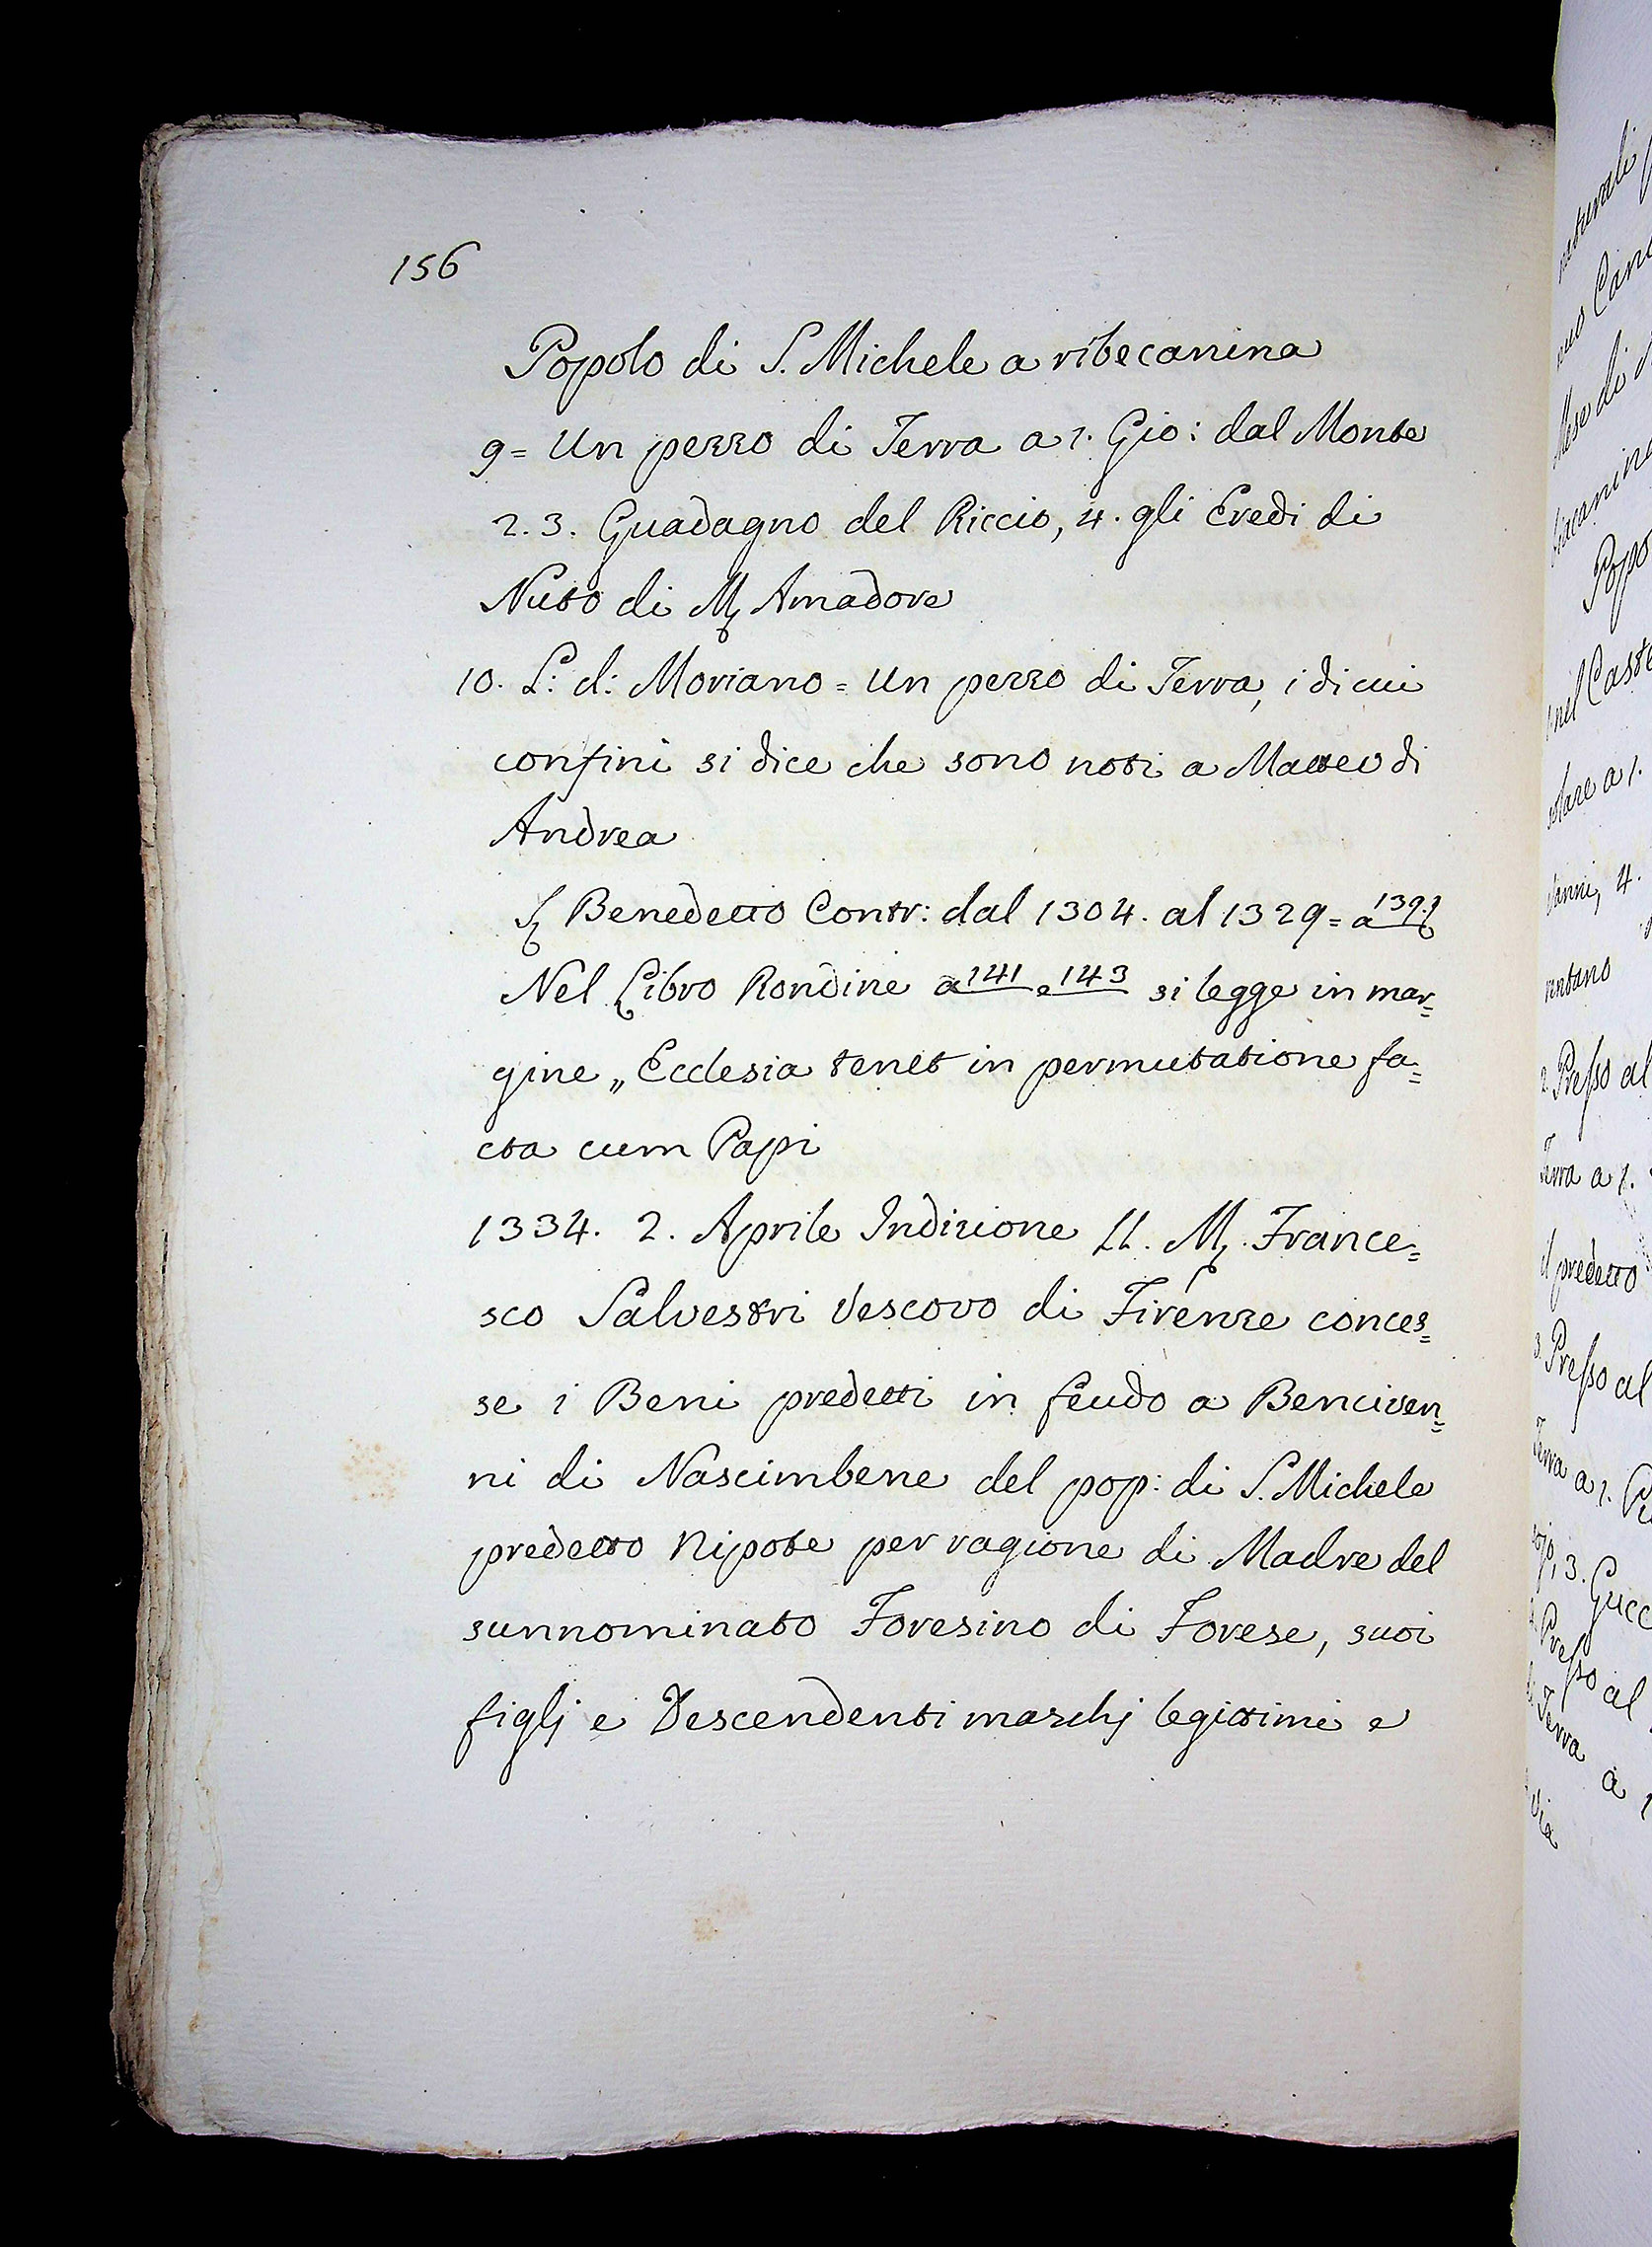 156
Popolo di S. Michele a ribecanina
9= Un pezzo di Terra a 1. Gio: dal Monte
2. 3. Guadagno del Riccio, 4. gli Eredi di
Nuto di M. Amadore
10. L: d: Moriano = Un pezzo di Terra, i di cui
confini si dice che sono noti a Matteo di
Andrea
S. Benedetto Contr: dal 1304. al 1329 = a 139.
Nel Libro Rondine a 141 e 143 si legge in mar=
gine „ Ecclesia tenet in permutatione fa=
cta cum Papi
1334. 2. Aprile Indizione II. M. France=
sco Salvestri Vescovo di Firenze conces=
se i Beni predetti in feudo a Benciven=
ni di Nascimbene del pop: di S. Michele
predetto Nipote per ragione di Madre del
sunnominato Foresino di Forese, suoi
figlj e Descendenti maschj legittimi e
naturali
Mese di
Popo
nel Caste
solare a 1.
Vanni, 4.
2. Presso al
Terra a 1.
il predetto
3. Presso al
Terra a 1.
3. Gucc
4. Presso al
di Terra a 1
Via